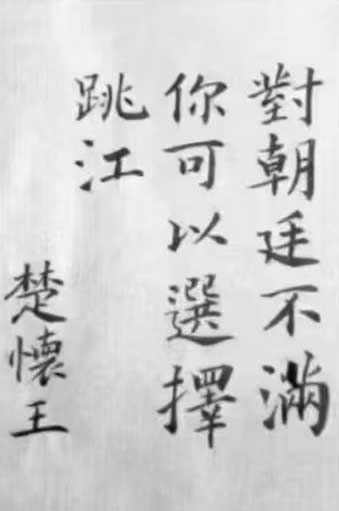 對朝廷不滿
你可以選擇
跳江
楚懷王